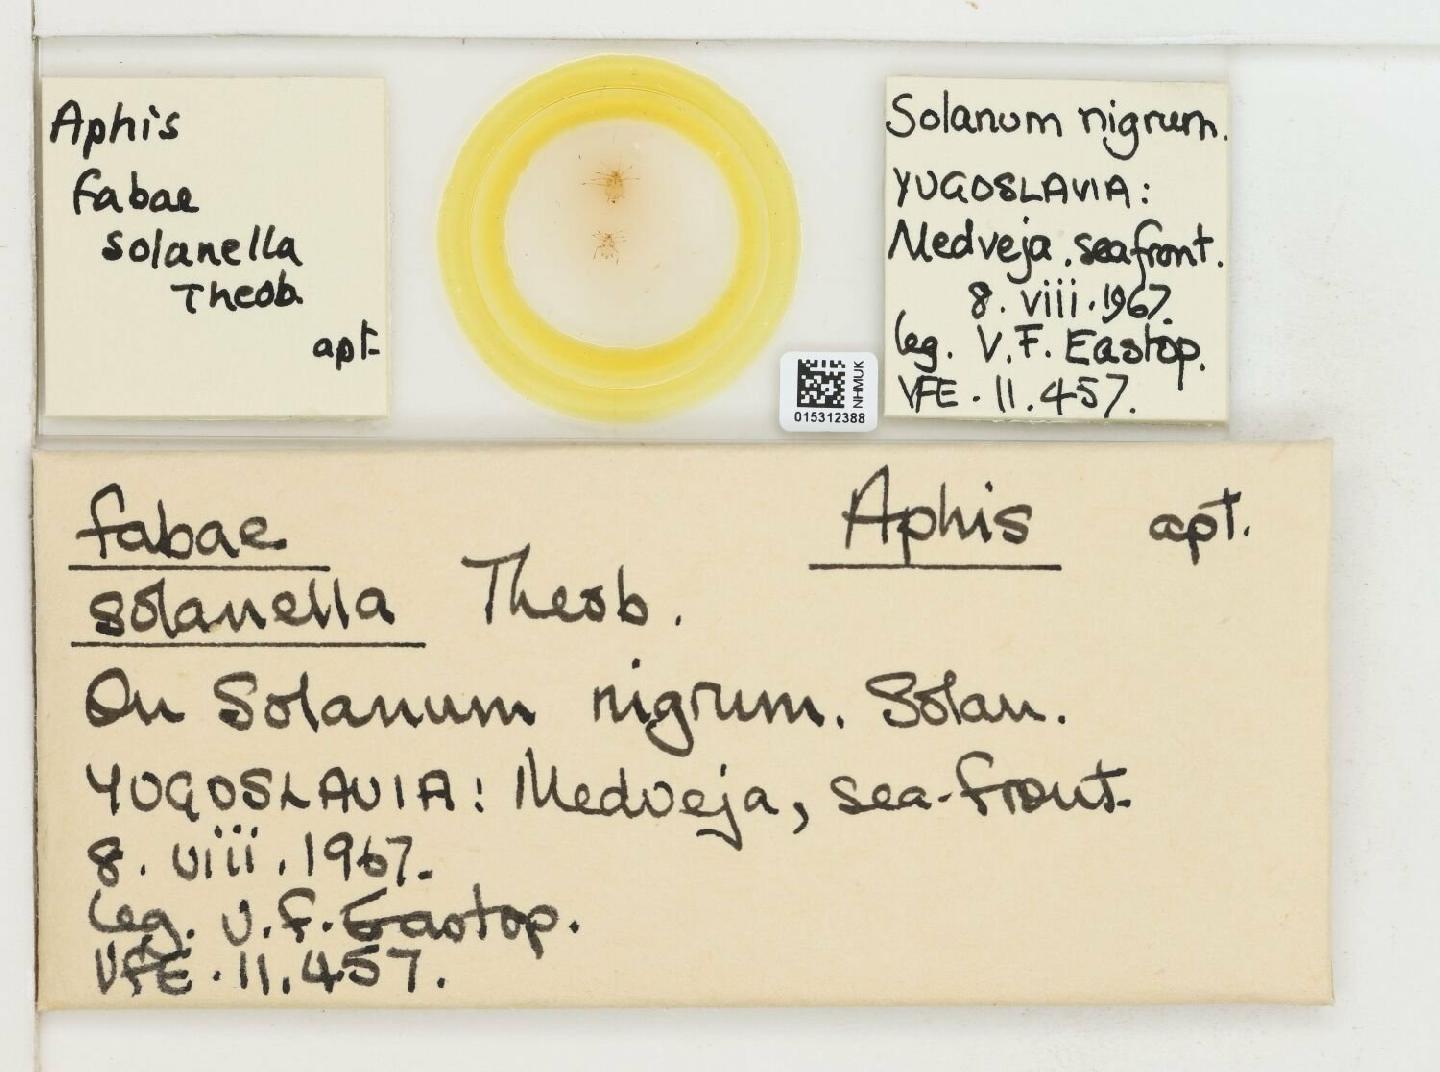 Aphis
fabae
solanella
Theob.
apt.
NHMUK
015312388
Solanum nigrum.
YUGOSLAVIA:
Medveja, seafront.
8. viii. 1967.
leg. V.F. Eastop.
VFE. 11.457.
fabae Aphis apt.
solanella Theob.
On Solanum nigrum. Solan.
YUGOSLAVIA: Medveja, sea-front.
8. viii. 1967.
leg. V.F. Eastop.
VFE. 11.457.